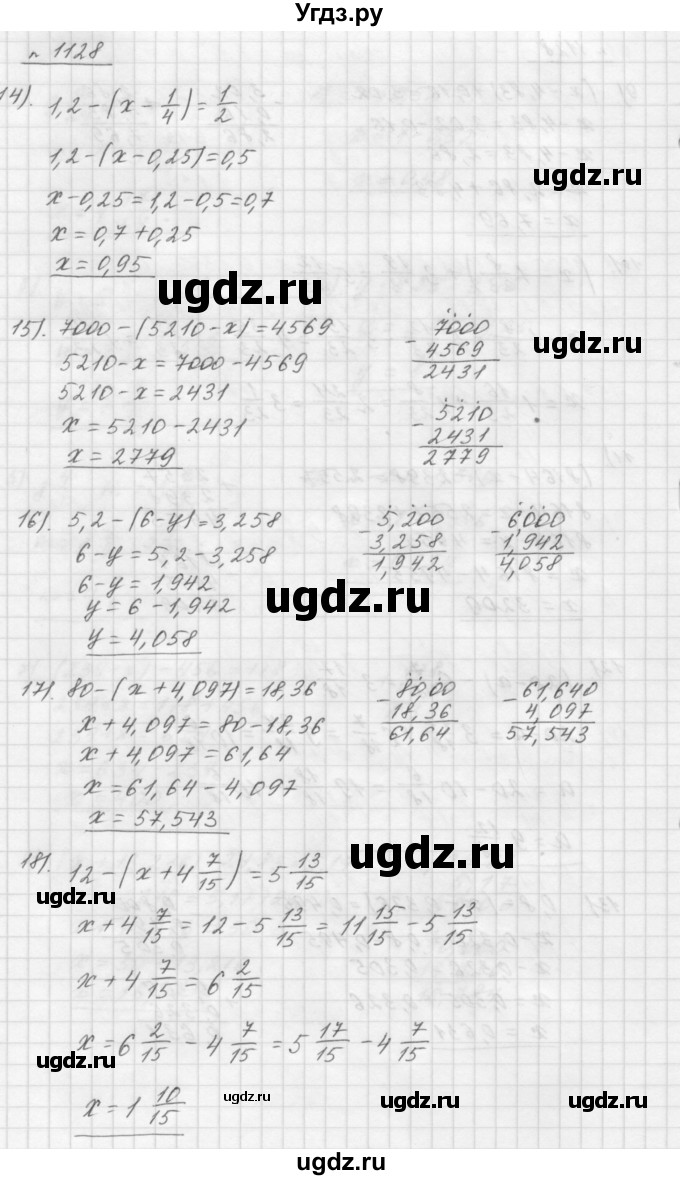 Угдз.ру
n 1128
14). 1,2-(x-1/4)=1/2
1,2-(x-0,25)=0,5
x-0,25=1,2-0,5=0,7
x=0,7+0,25
x=0,95
15). 7000-(5210-x)=4569
5210-x=7000-4569
5210-x=2431
x=5210-2431
x=2779
-7000
4569
2431
-5210
2431
2779
16). 5,2-(6-y)=3,258
6-y=5,2-3,258
6-y=1,942
y=6-1,942
y=4,058
-5,200
3,258
1,942
-6,000
1,942
4,058
17). 80-(x+4,097)=18,36
x+4,097=80-18,36
x+4,097=61,64
x=61,64-4,097
x=57,543
-80,00
18,36
61,64
-61,640
4,097
57,543
18). 12-(x+4 7/15)=5 13/15
x+4 7/15=12-5 13/15=11 15/15-5 13/15
x+4 7/15=6 2/15
x=6 2/15-4 7/15=5 17/15-4 7/15
x=1 10/15
ugdz.ru
ugdz.ru
ugdz.ru
ugdz.ru
ugdz.ru
ugdz.ru
ugdz.ru
ugdz.ru
ugdz.ru
ugdz.ru
ugdz.ru
ugdz.ru